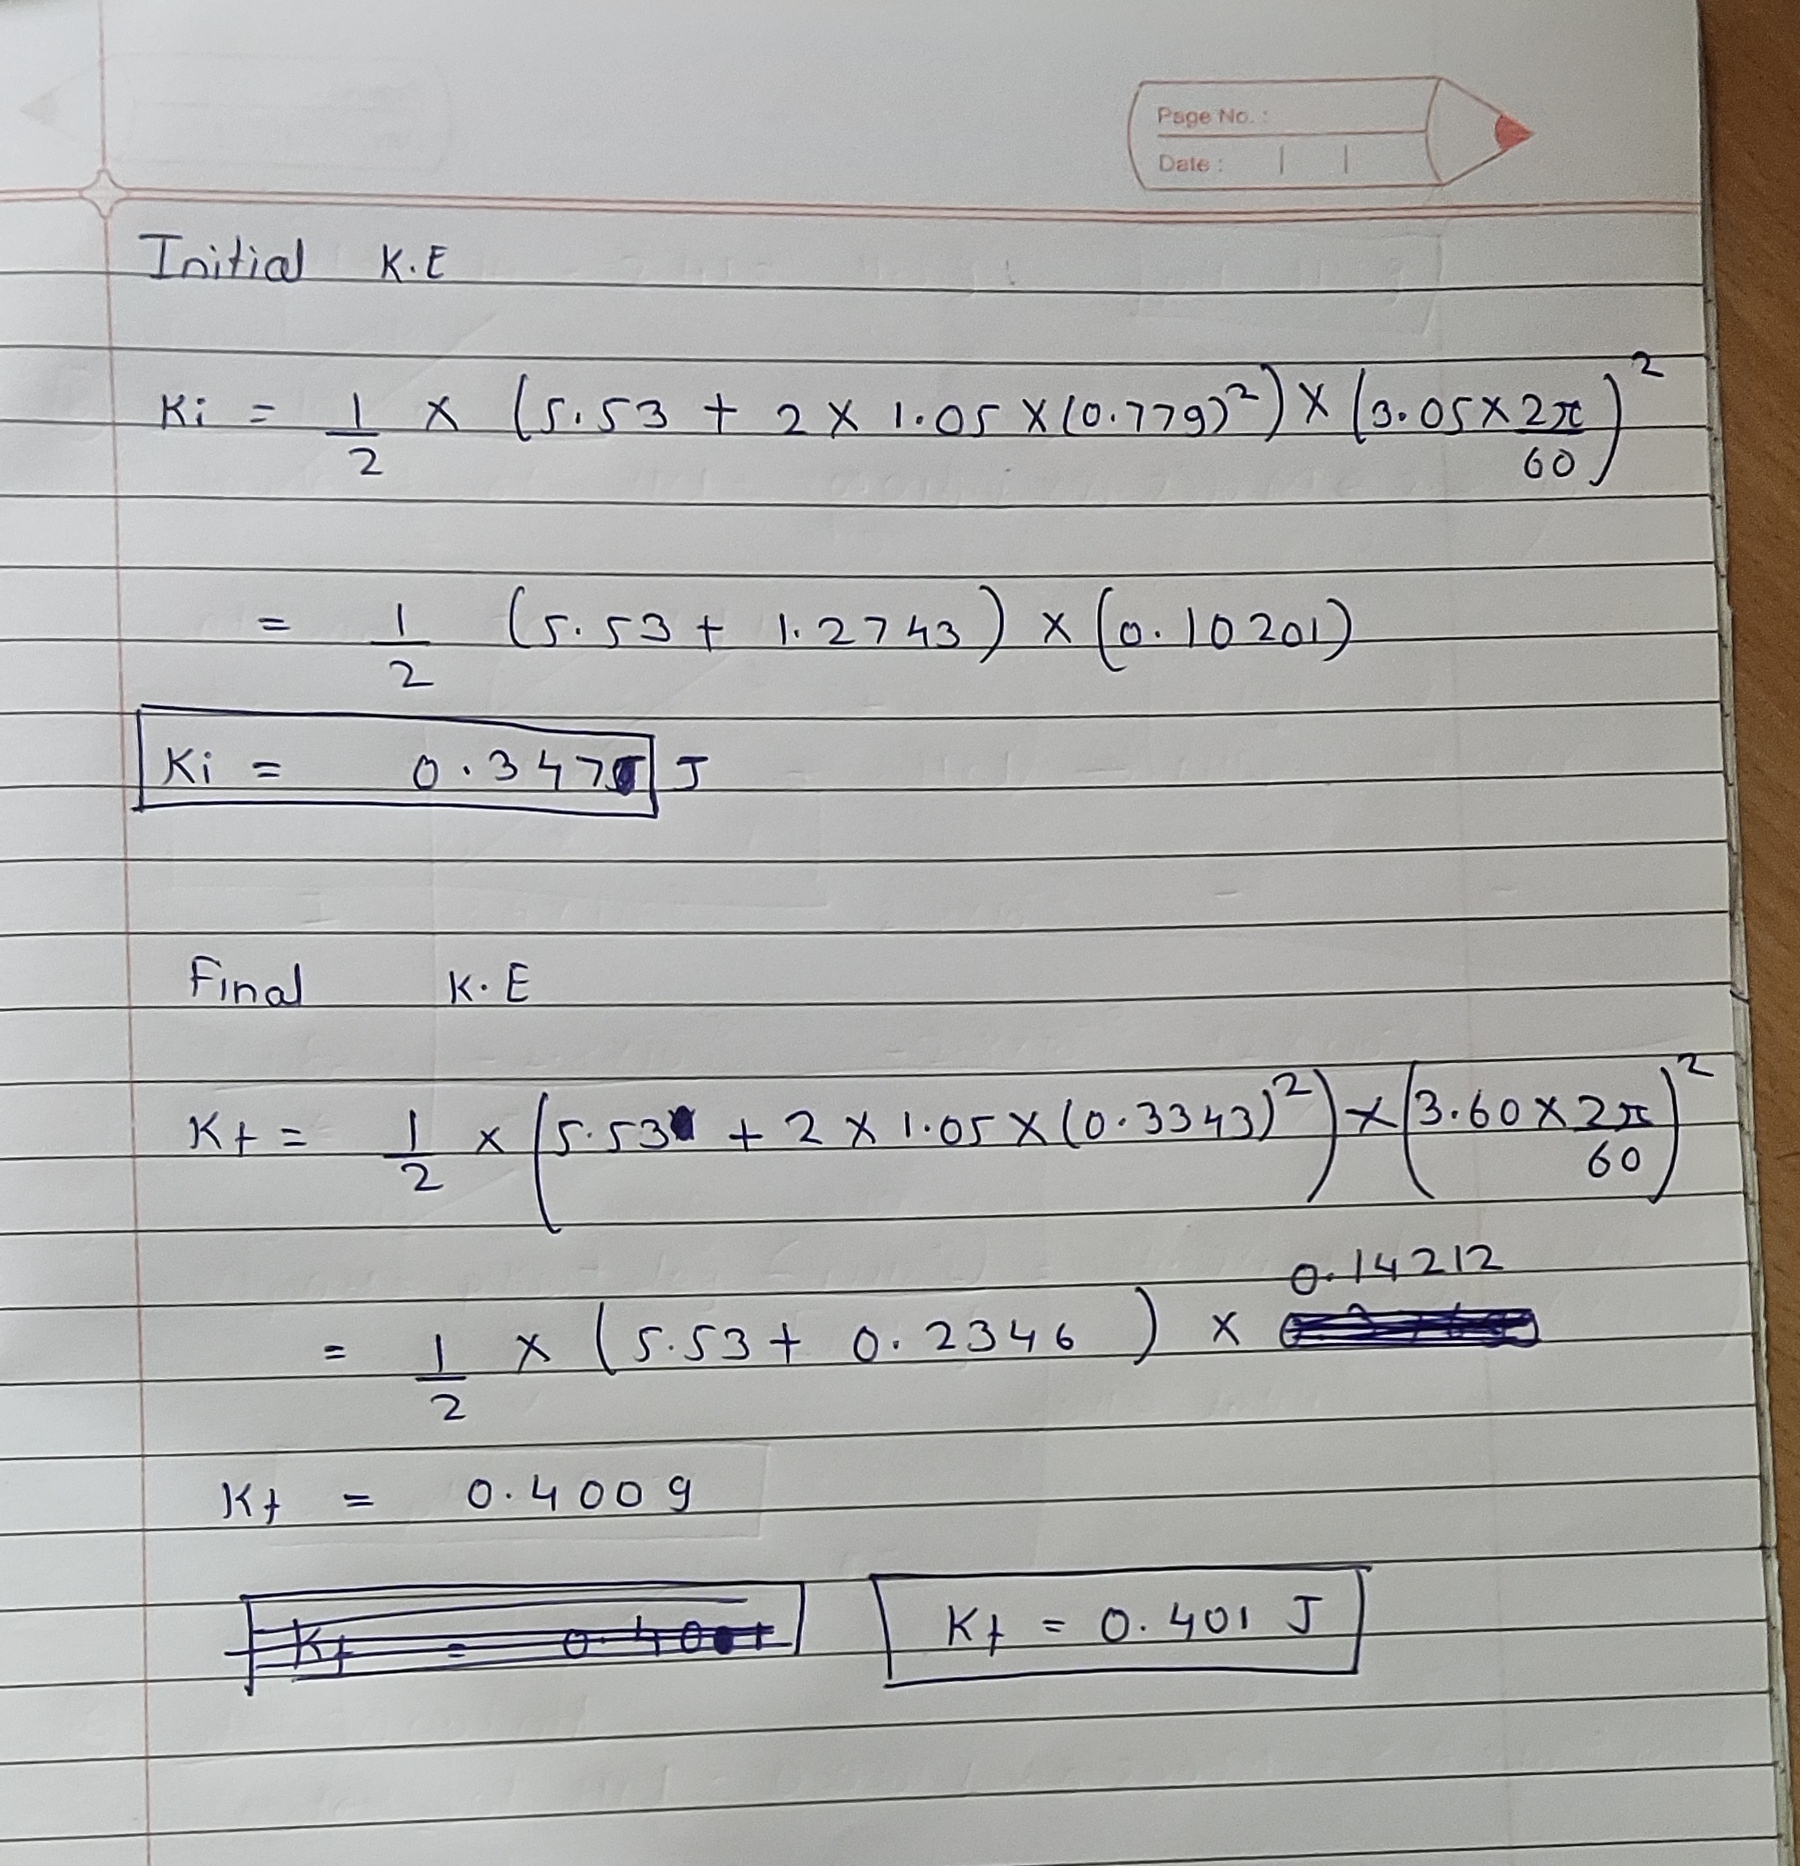 Page No. :
Date :
Initial K.E
Ki = 1/2 × (5.53 + 2 × 1.05 × (0.779)²) × (3.05 × 2π/60)²
= 1/2 (5.53 + 1.2743) × (0.10201)
Ki = 0.347 J
Final K.E
Kf = 1/2 × (5.53 + 2 × 1.05 × (0.3343)²) × (3.60 × 2π/60)²
= 1/2 × (5.53 + 0.2346) × 0.14212
Kf = 0.4009
Kf = 0.401 J